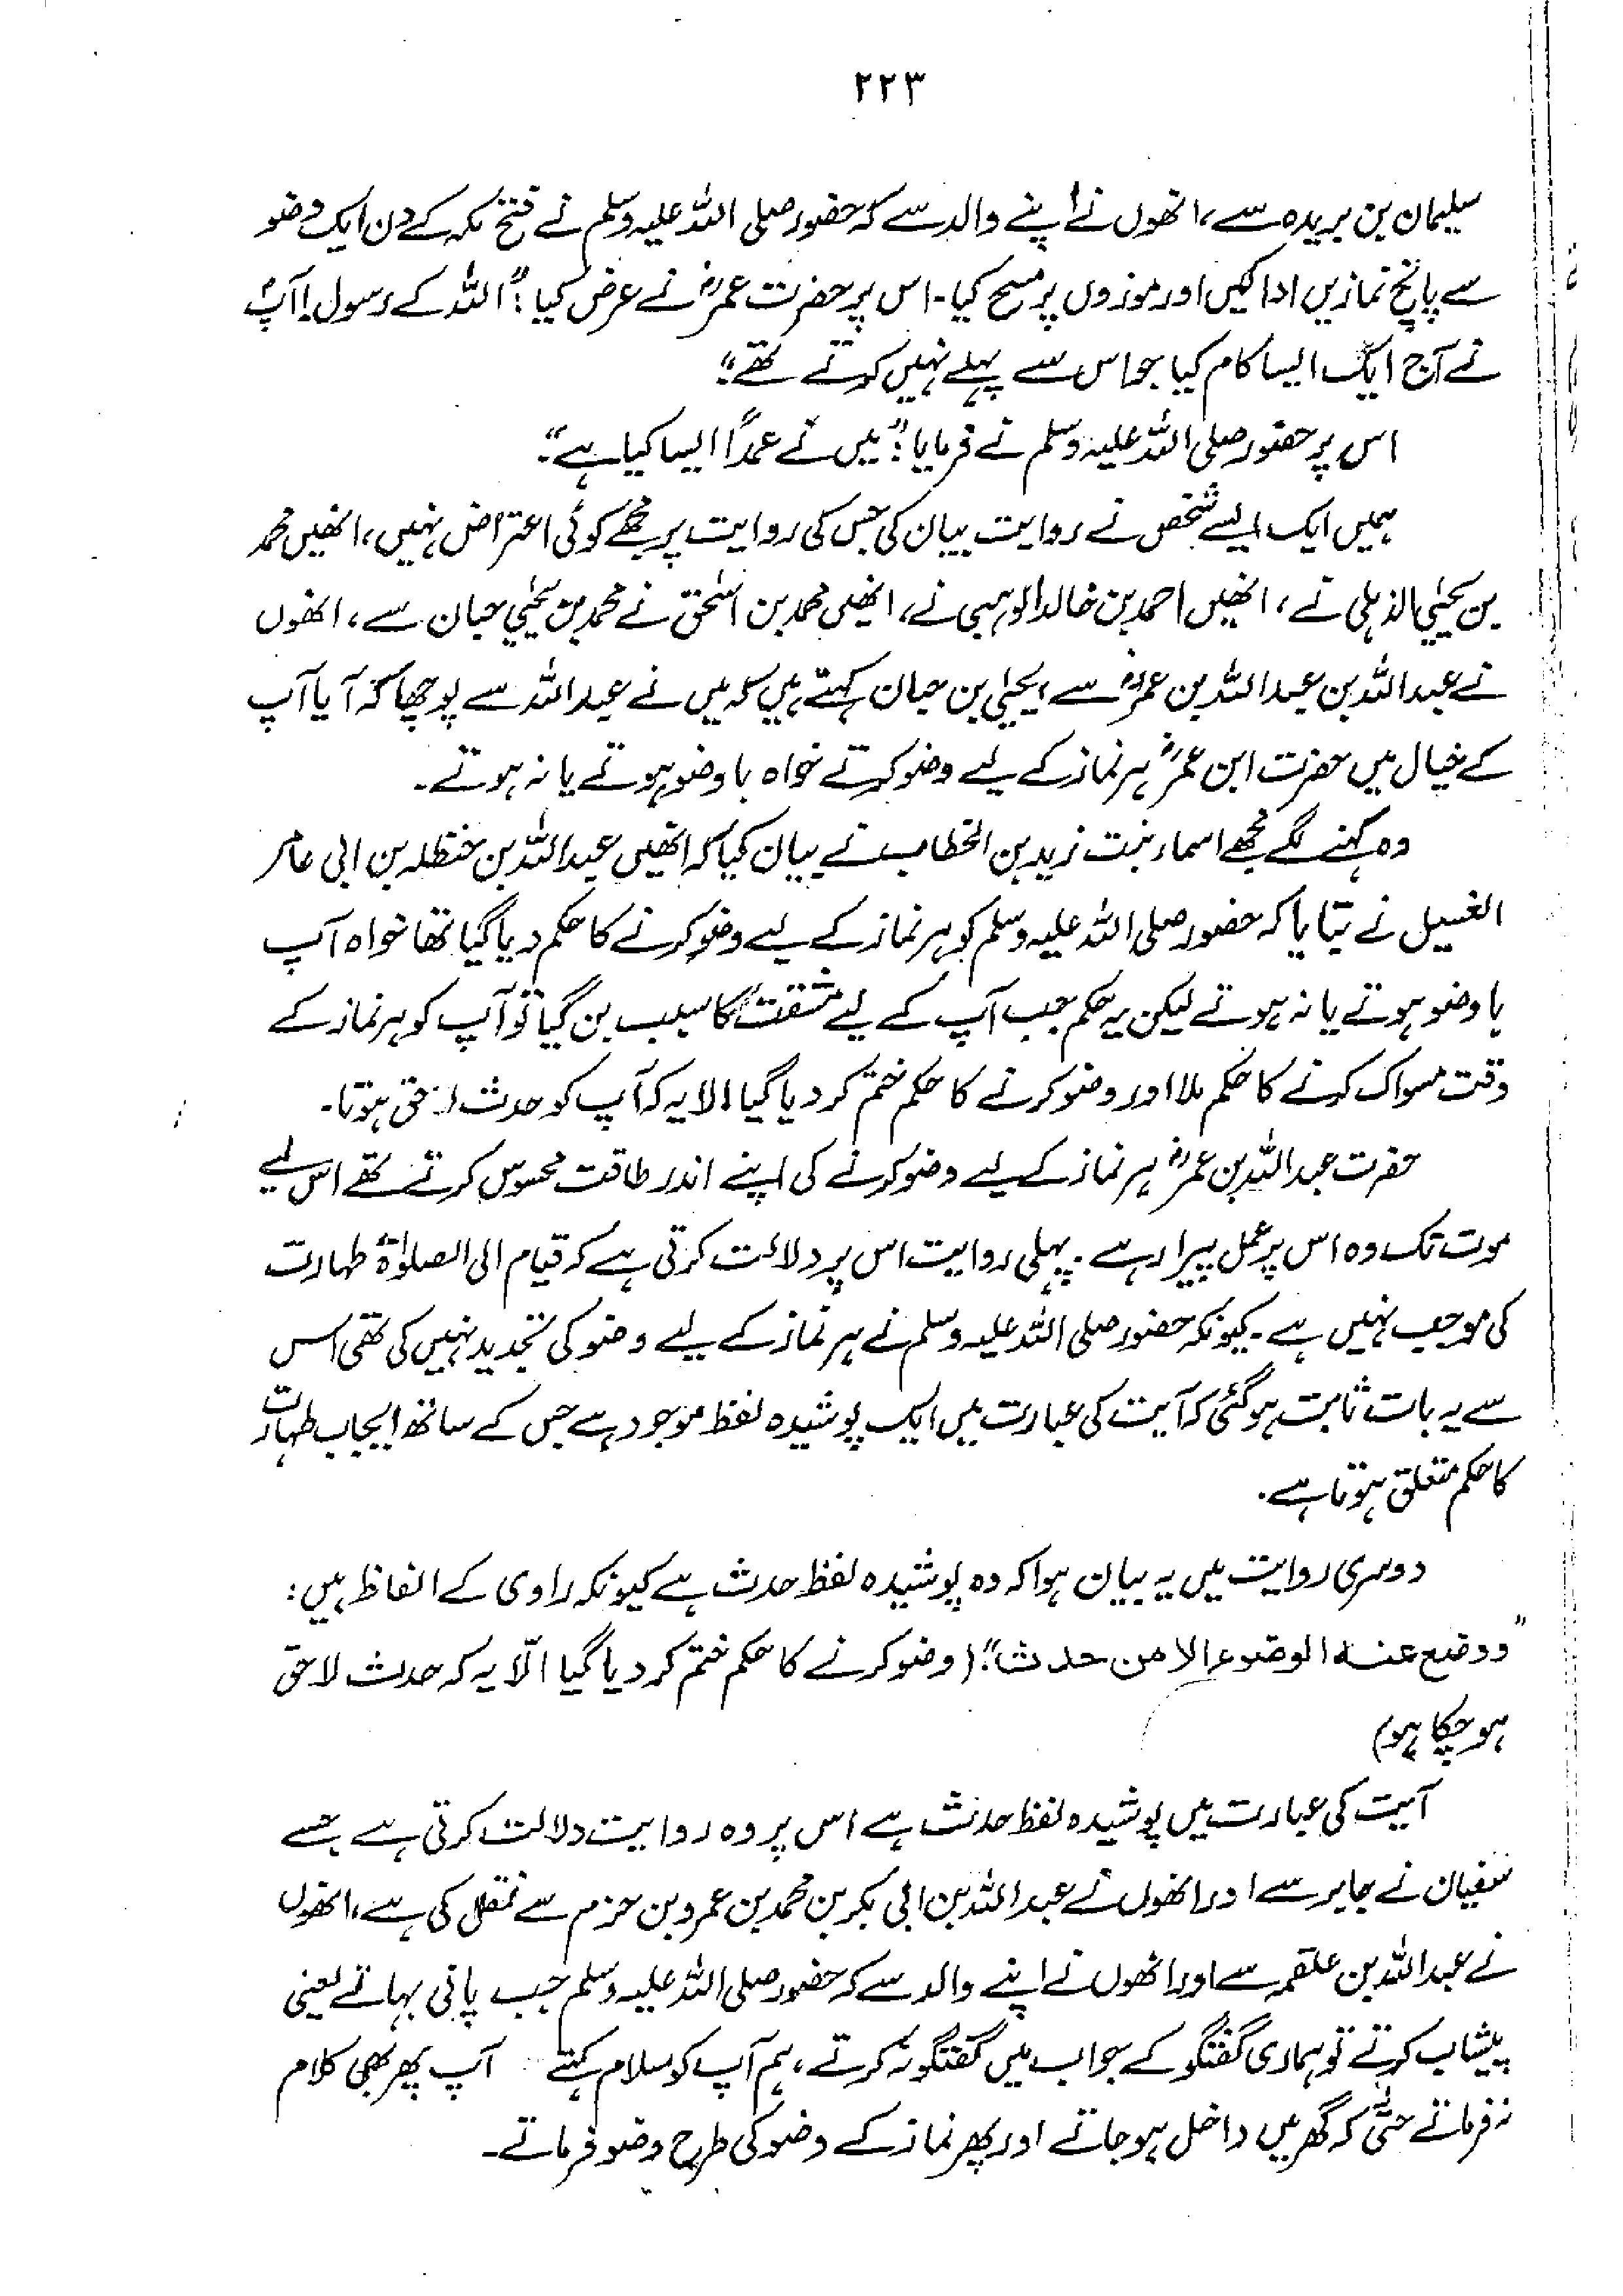 ۲۲۳
سلیمان بن بریدہ سے، انھوں نے اپنے والد سے کہ حضور صلی اللہ علیہ وسلم نے فتح مکہ کے دن ایک وضو
سے پانچ نمازیں ادا کیں اور موزوں پر مسح کیا۔ اس پر حضرت عمرؓ نے عرض کیا: "اللہ کے رسول! آپؐ
نے آج ایک ایسا کام کیا جو اس سے پہلے نہیں کرتے تھے"۔
اس پر حضور صلی اللہ علیہ وسلم نے فرمایا: "میں نے عمداً ایسا کیا ہے"۔
ہمیں ایک ایسے شخص نے روایت بیان کی جس کی روایت پر مجھے کوئی اعتراض نہیں، انھیں محمد
بن یحییٰ الذہلی نے، انھیں احمد بن خالد الوہبی نے، انھیں محمد بن اسحٰق نے محمد بن یحییٰ حبان سے، انھوں
نے عبداللہ بن عبداللہ بن عمرؓ سے، یحییٰ بن حبان کہتے ہیں کہ میں نے عبداللہ سے پوچھا کہ آیا آپ
کے خیال میں حضرت ابن عمرؓ ہر نماز کے لیے وضو کرتے خواہ باوضو ہوتے یا نہ ہوتے۔
وہ کہنے لگے مجھے اسماء بنت زید بن الخطاب نے بیان کیا کہ انھیں عبداللہ بن حنظلہ بن ابی عامر
الغسیل نے بتایا کہ حضور صلی اللہ علیہ وسلم کو ہر نماز کے لیے وضو کرنے کا حکم دیا گیا تھا خواہ آپ
باوضو ہوتے یا نہ ہوتے لیکن یہ حکم جب آپ کے لیے مشقت کا سبب بن گیا تو آپ کو ہر نماز کے
وقت مسواک کرنے کا حکم ملا اور وضو کرنے کا حکم ختم کر دیا گیا الا یہ کہ آپ کو حدث لاحق ہوتا۔
حضرت عبداللہ بن عمرؓ ہر نماز کے لیے وضو کرنے کی اپنے اندر طاقت محسوس کرتے تھے اس لیے
موت تک وہ اس پر عمل پیرا رہے۔ پہلی روایت اس پر دلالت کرتی ہے کہ قیام الی الصلوٰۃ طہارت
کی موجب نہیں ہے۔ کیونکہ حضور صلی اللہ علیہ وسلم نے ہر نماز کے لیے وضو کی تجدید نہیں کی تھی اس
سے یہ بات ثابت ہو گئی کہ آیت کی عبارت میں ایک پوشیدہ لفظ موجود ہے جس کے ساتھ ایجاب طہارت
کا حکم متعلق ہوتا ہے۔
دوسری روایت میں یہ بیان ہوا کہ وہ پوشیدہ لفظ حدث ہے کیونکہ راوی کے الفاظ ہیں:
"ووضع عنه الوضوء الا من حدث" (وضو کرنے کا حکم ختم کر دیا گیا الّا یہ کہ حدث لاحق
ہو چکا ہو)
آیت کی عبارت میں پوشیدہ لفظ حدث ہے اس پر وہ روایت دلالت کرتی ہے جسے
سفیان نے جابر سے اور انھوں نے عبداللہ بن ابی بکر بن محمد بن عمرو بن حزم سے نقل کی ہے، انھوں
نے عبداللہ بن علقمہ سے اور انھوں نے اپنے والد سے کہ حضور صلی اللہ علیہ وسلم جب پانی بہاتے یعنی
پیشاب کرتے تو ہماری گفتگو کے جواب میں گفتگو نہ کرتے، ہم آپ کو سلام کہتے آپ پھر بھی کلام
نہ فرماتے حتّٰی کہ گھر میں داخل ہو جاتے اور پھر نماز کے وضو کی طرح وضو فرماتے۔